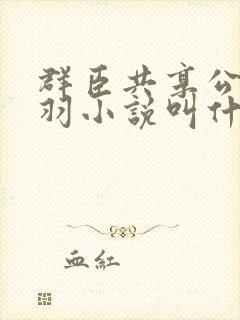 群臣共享公
羽小說叫什
血紅